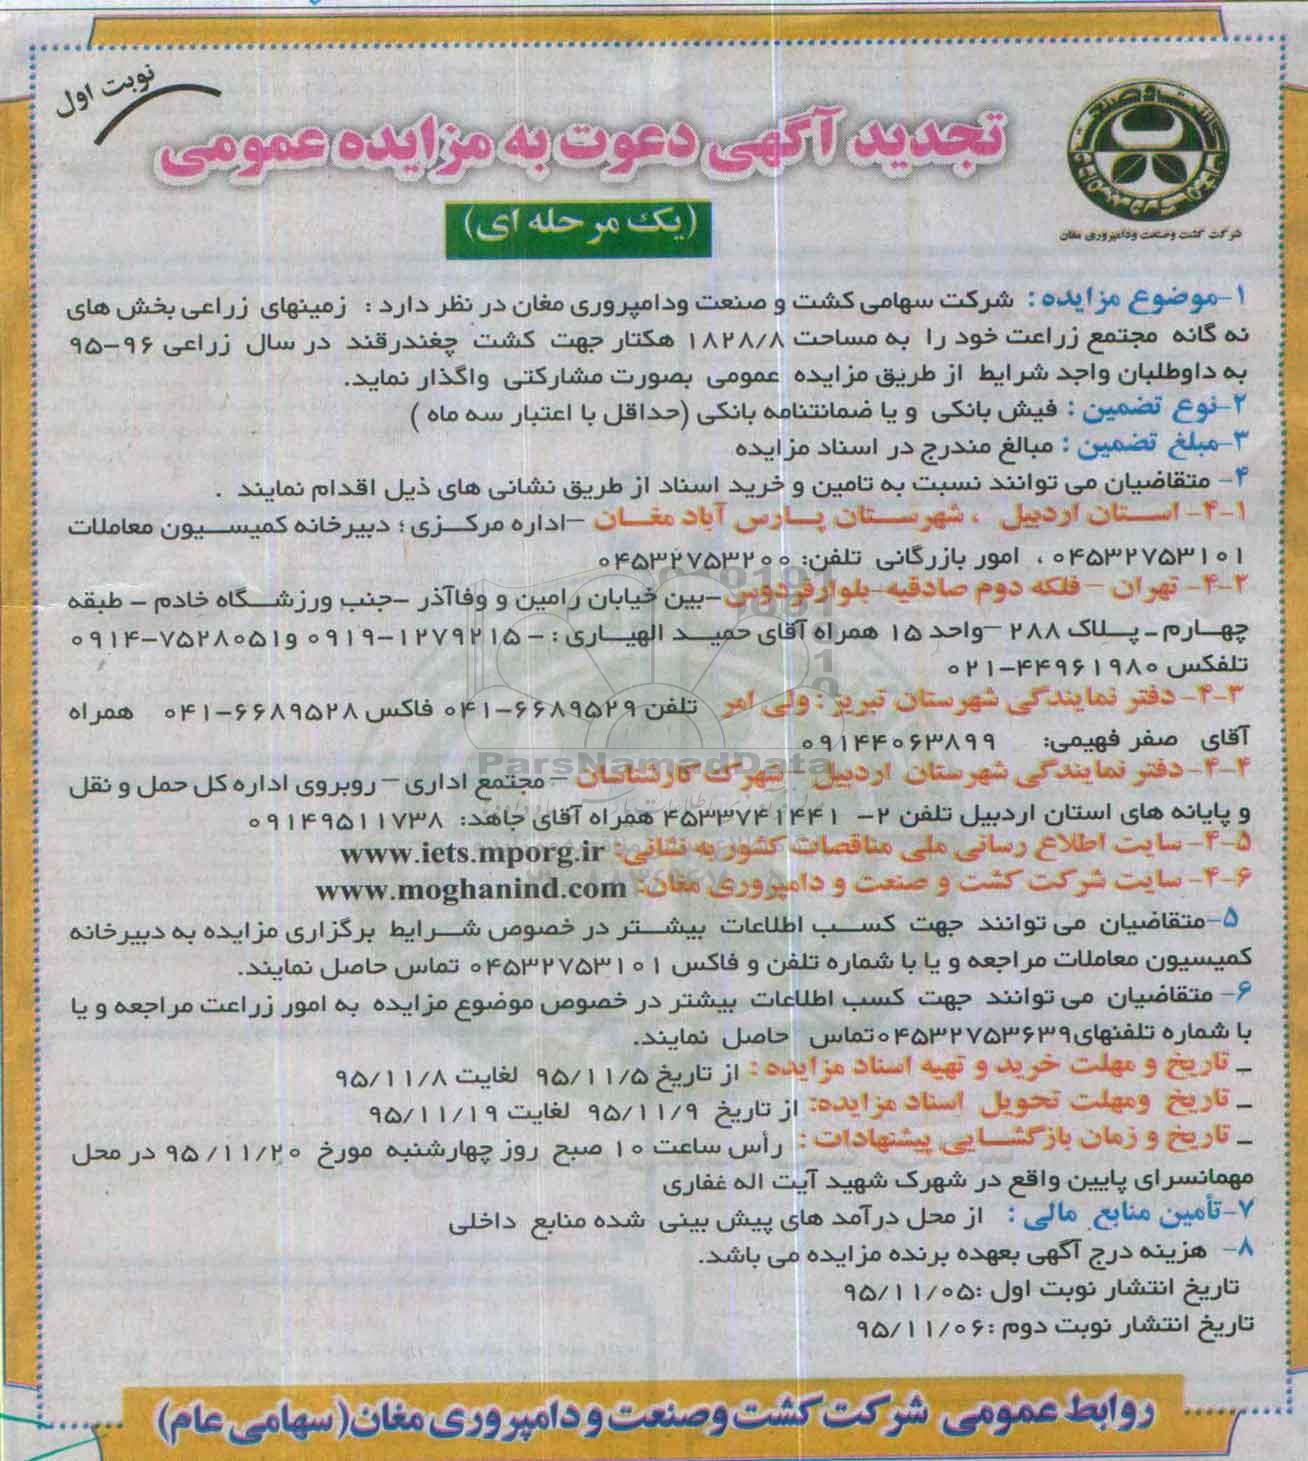 نوبت اول
تجدید آگهی دعوت به مزایده عمومی
(یک مرحله ای)
شرکت کشت وصنعت ودامپروری مغان
۱-موضوع مزایده : شرکت سهامی کشت و صنعت ودامپروری مغان در نظر دارد : زمینهای زراعی بخش های
نه گانه مجتمع زراعت خود را به مساحت ۱۸۲۸/۸ هکتار جهت کشت چغندرقند در سال زراعی ۹۶-۹۵
به داوطلبان واجد شرایط از طریق مزایده عمومی بصورت مشارکتی واگذار نماید.
۲-نوع تضمین : فیش بانکی و یا ضمانتنامه بانکی (حداقل با اعتبار سه ماه )
۳-مبلغ تضمین : مبالغ مندرج در اسناد مزایده
۴- متقاضیان می توانند نسبت به تامین و خرید اسناد از طریق نشانی های ذیل اقدام نمایند .
۴-۱- استان اردبیل ، شهرستان پارس آباد مغان -اداره مرکزی ؛ دبیرخانه کمیسیون معاملات
۰۴۵۳۲۷۵۳۱۰۱ ، امور بازرگانی تلفن: ۰۴۵۳۲۷۵۳۲۰۰
۴-۲- تهران - فلکه دوم صادقیه-بلوارفردوس -بین خیابان رامین و وفاآذر -جنب ورزشگاه خادم - طبقه
چهارم - پلاک ۲۸۸ -واحد ۱۵ همراه آقای حمید الهیاری : - ۱۲۷۹۲۱۵-۰۹۱۹ و۷۵۲۸۰۵۱-۰۹۱۴
تلفکس ۴۴۹۶۱۹۸۰-۰۲۱
۴-۳- دفتر نمایندگی شهرستان تبریز : ولی امر تلفن ۶۶۸۹۵۲۹-۰۴۱ فاکس ۶۶۸۹۵۲۸-۰۴۱ همراه
آقای صفر فهیمی: ۰۹۱۴۴۰۶۳۸۹۹
۴-۴- دفتر نمایندگی شهرستان اردبیل شهرک کارشناسان - مجتمع اداری - روبروی اداره کل حمل و نقل
و پایانه های استان اردبیل تلفن ۲- ۴۵۳۳۷۴۱۴۴۱ همراه آقای جاهد: ۰۹۱۴۹۵۱۱۷۳۸
۴-۵- سایت اطلاع رسانی ملی مناقصات کشور به نشانی: www.iets.mporg.ir
۴-۶- سایت شرکت کشت و صنعت و دامپروری مغان: www.moghanind.com
۵-متقاضیان می توانند جهت کسب اطلاعات بیشتر در خصوص شرایط برگزاری مزایده به دبیرخانه
کمیسیون معاملات مراجعه و یا با شماره تلفن و فاکس ۰۴۵۳۲۷۵۳۱۰۱ تماس حاصل نمایند.
۶- متقاضیان می توانند جهت کسب اطلاعات بیشتر در خصوص موضوع مزایده به امور زراعت مراجعه و یا
با شماره تلفنهای۰۴۵۳۲۷۵۳۶۳۹تماس حاصل نمایند.
_ تاریخ و مهلت خرید و تهیه اسناد مزایده : از تاریخ ۹۵/۱۱/۵ لغایت ۹۵/۱۱/۸
_ تاریخ ومهلت تحویل اسناد مزایده: از تاریخ ۹۵/۱۱/۹ لغایت ۹۵/۱۱/۱۹
_ تاریخ و زمان بازگشایی پیشنهادات : رأس ساعت ۱۰ صبح روز چهارشنبه مورخ ۹۵/۱۱/۲۰ در محل
مهمانسرای پایین واقع در شهرک شهید آیت اله غفاری
۷-تأمین منابع مالی : از محل درآمد های پیش بینی شده منابع داخلی
۸- هزینه درج آگهی بعهده برنده مزایده می باشد.
تاریخ انتشار نوبت اول :۹۵/۱۱/۰۵
تاریخ انتشار نوبت دوم :۹۵/۱۱/۰۶
روابط عمومی شرکت کشت وصنعت و دامپروری مغان(سهامی عام)
ParsNamadData